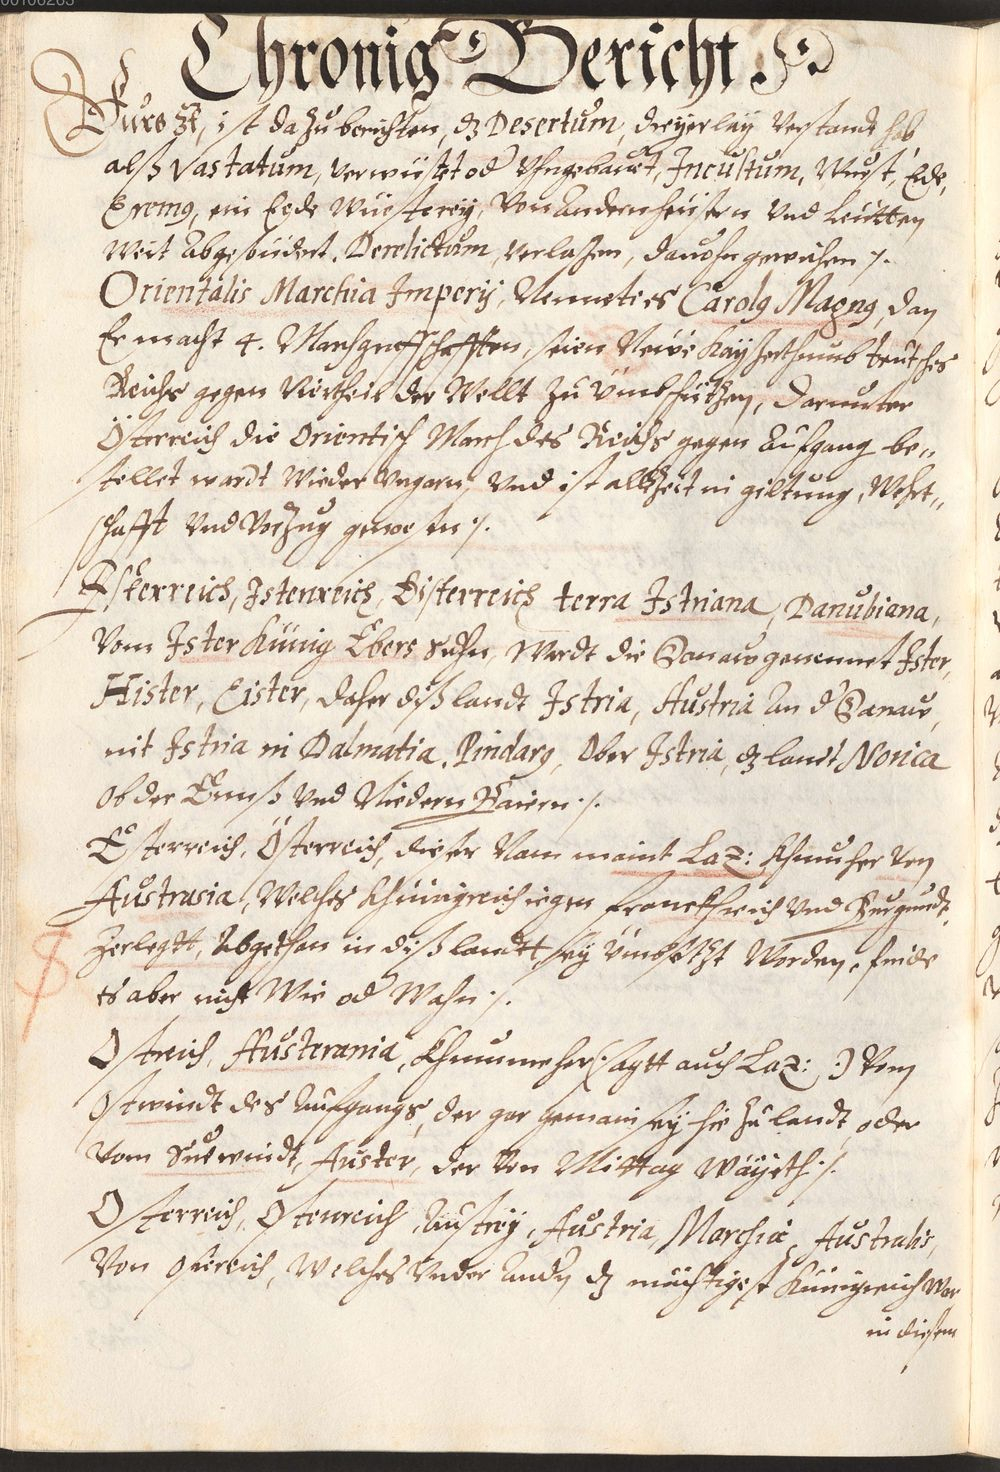 Chronig Bericht
ist da zu berichten, dz Desertum, dreyerlay Verstandt hab
alß Vastatum, verwüstet od Vngebauet, Incustum, Wüst, Ede,
Eremg, ein Eede Wüesterey, Von Andern heüsern Vnd Leütten
Weit Abgesündert. Derelictum, verlassen, davohn gewichen /.
Orientalis Marchia Imperij, Nennet es Carolg Magng, dan
Er macht 4. Marchgraffschafften, seien Neüe Kayserthumb teutsches
Reichs gegen Viertheil der Wellt zu Vmbschützen, darunter
Österreich die Orientisch March des Reichs gegen Aufgang be„
stellet wardt Wieder Vngarn, Vnd ist allzeit in giltung,
schafft Vnd Vorzug gewesen /.
Istenreich, Disterreich terra Istriana, Danubiana,
Vom Ister Künig Ebers Suhn, Wardt die Donaw genennet Ister,
Hister, Eister, daher diß landt Istria, Austria An d Donaw,
nit Istria in Dalmatia. Pindarg, Ober Istria, dz landt Norica
Ob der Ennß Vnd Niedern Baiern /.
Esterreich, Österreich, dieser Nam maint Laz: Khumher Von
Austrasia, Welches Khünigreich iegen Franckhreich Vnd Burgundt
Zerlegtt, Abgethan in diß landtt sey Vmbsetzt Worden, finde
es aber nicht Wie od Wahn /.
Ostreich, Austerania, Khumme her (: sagtt auch Laz: :) Vom
Ostwindt des Aufgangs, der gar gemain sey hie zu landt, oder
Vom Sudwindt, Auster, der Von Mittag Wäyeth /.
Osterreich, Ostenreich, Austrey, Austria, Marchia Australis,
Von Ostreich, Welches Vnder Andn dz mächtigest Künigreich War
in diesem